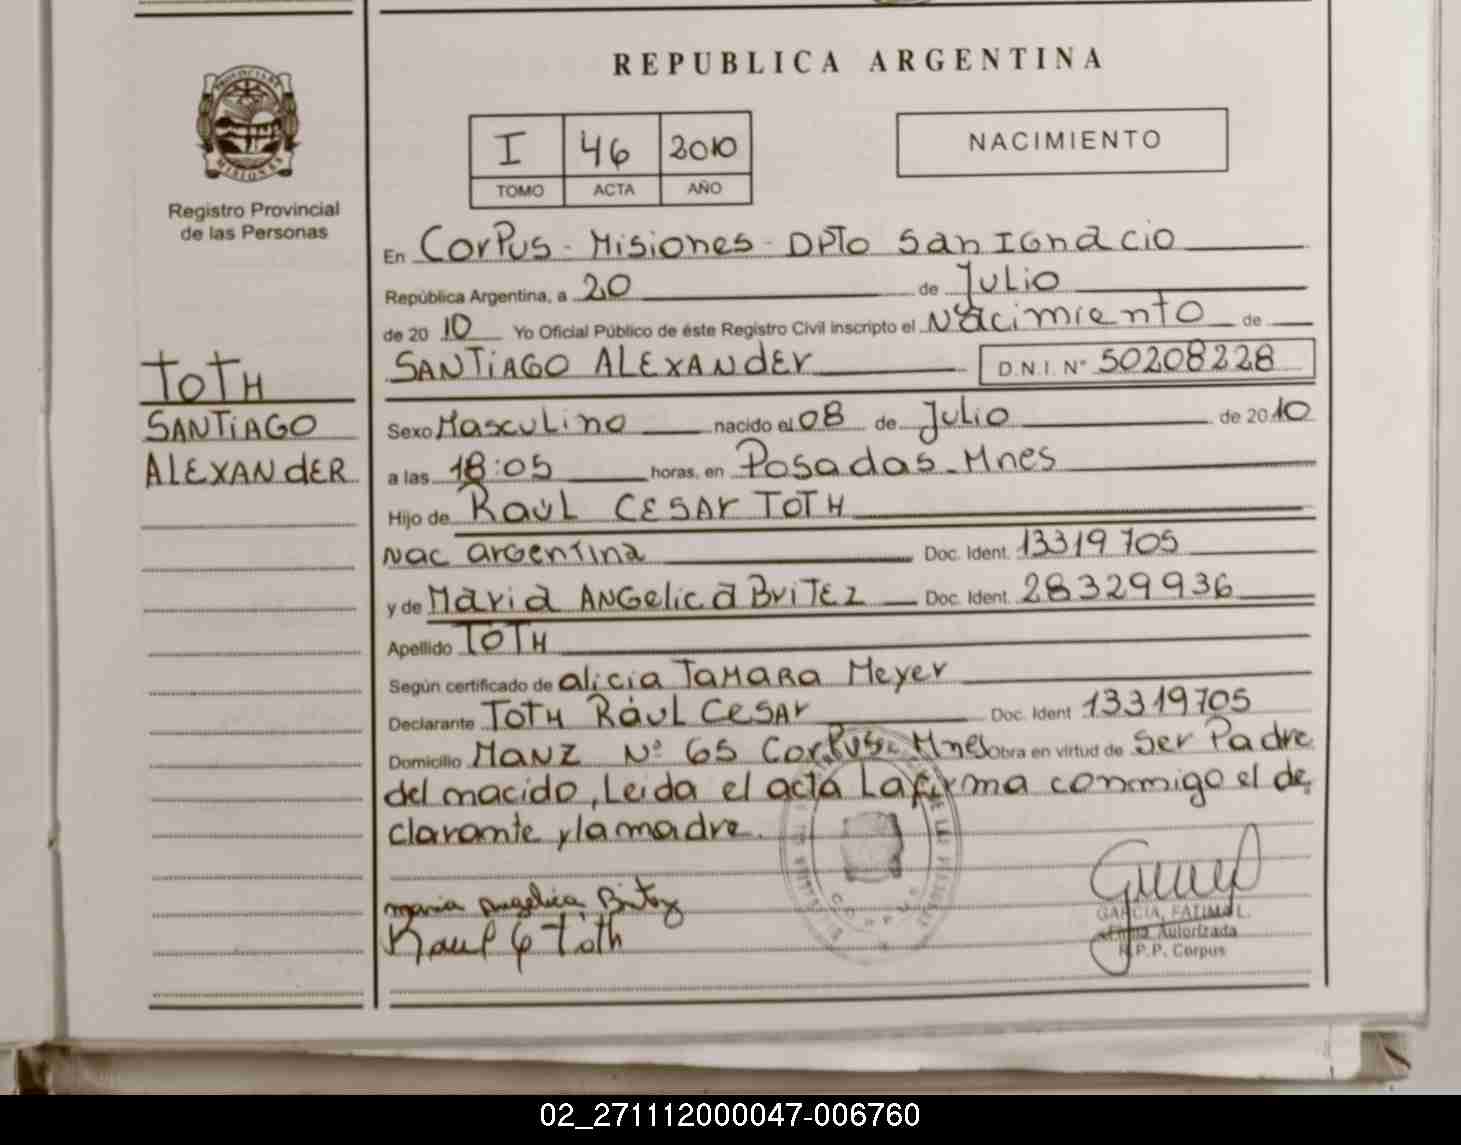 REPUBLICA ARGENTINA
PROVINCIA DE
MISIONES
Registro Provincial
de las Personas
I 46 2010
TOMO ACTA AÑO
NACIMIENTO
En Corpus - Misiones - DPTo San Ignacio
República Argentina, a 20 de Julio
de 20 10 Yo Oficial Público de éste Registro Civil inscripto el Nacimiento de
SANTiAGO ALEXANdEr D.N.I. N° 50208228
TOTH
SANTiAGO
ALEXANdER
Sexo Masculino nacido el 08 de Julio de 20 10
a las 18:05 horas, en Posadas - Mnes
Hijo de Raúl CESAr TOTH
Nac argentina Doc. Ident. 13319705
y de Maria ANGelica BriTEz Doc. Ident. 28329936
Apellido TOTH
Según certificado de alicia TaMARA Meyer
Declarante TOTH Rául CeSAr Doc. Ident 13319705
Domicilio MANZ Nº 65 Corpus - Mnes Obra en virtud de Ser Padre
del nacido, Leida el acta La firma conmigo el de
clarante y la madre.
maria Angelica Britez
Raul C Toth
GARCIA, FATIMA L.
Firma Autorizada
R.P.P. Corpus
02_271112000047-006760